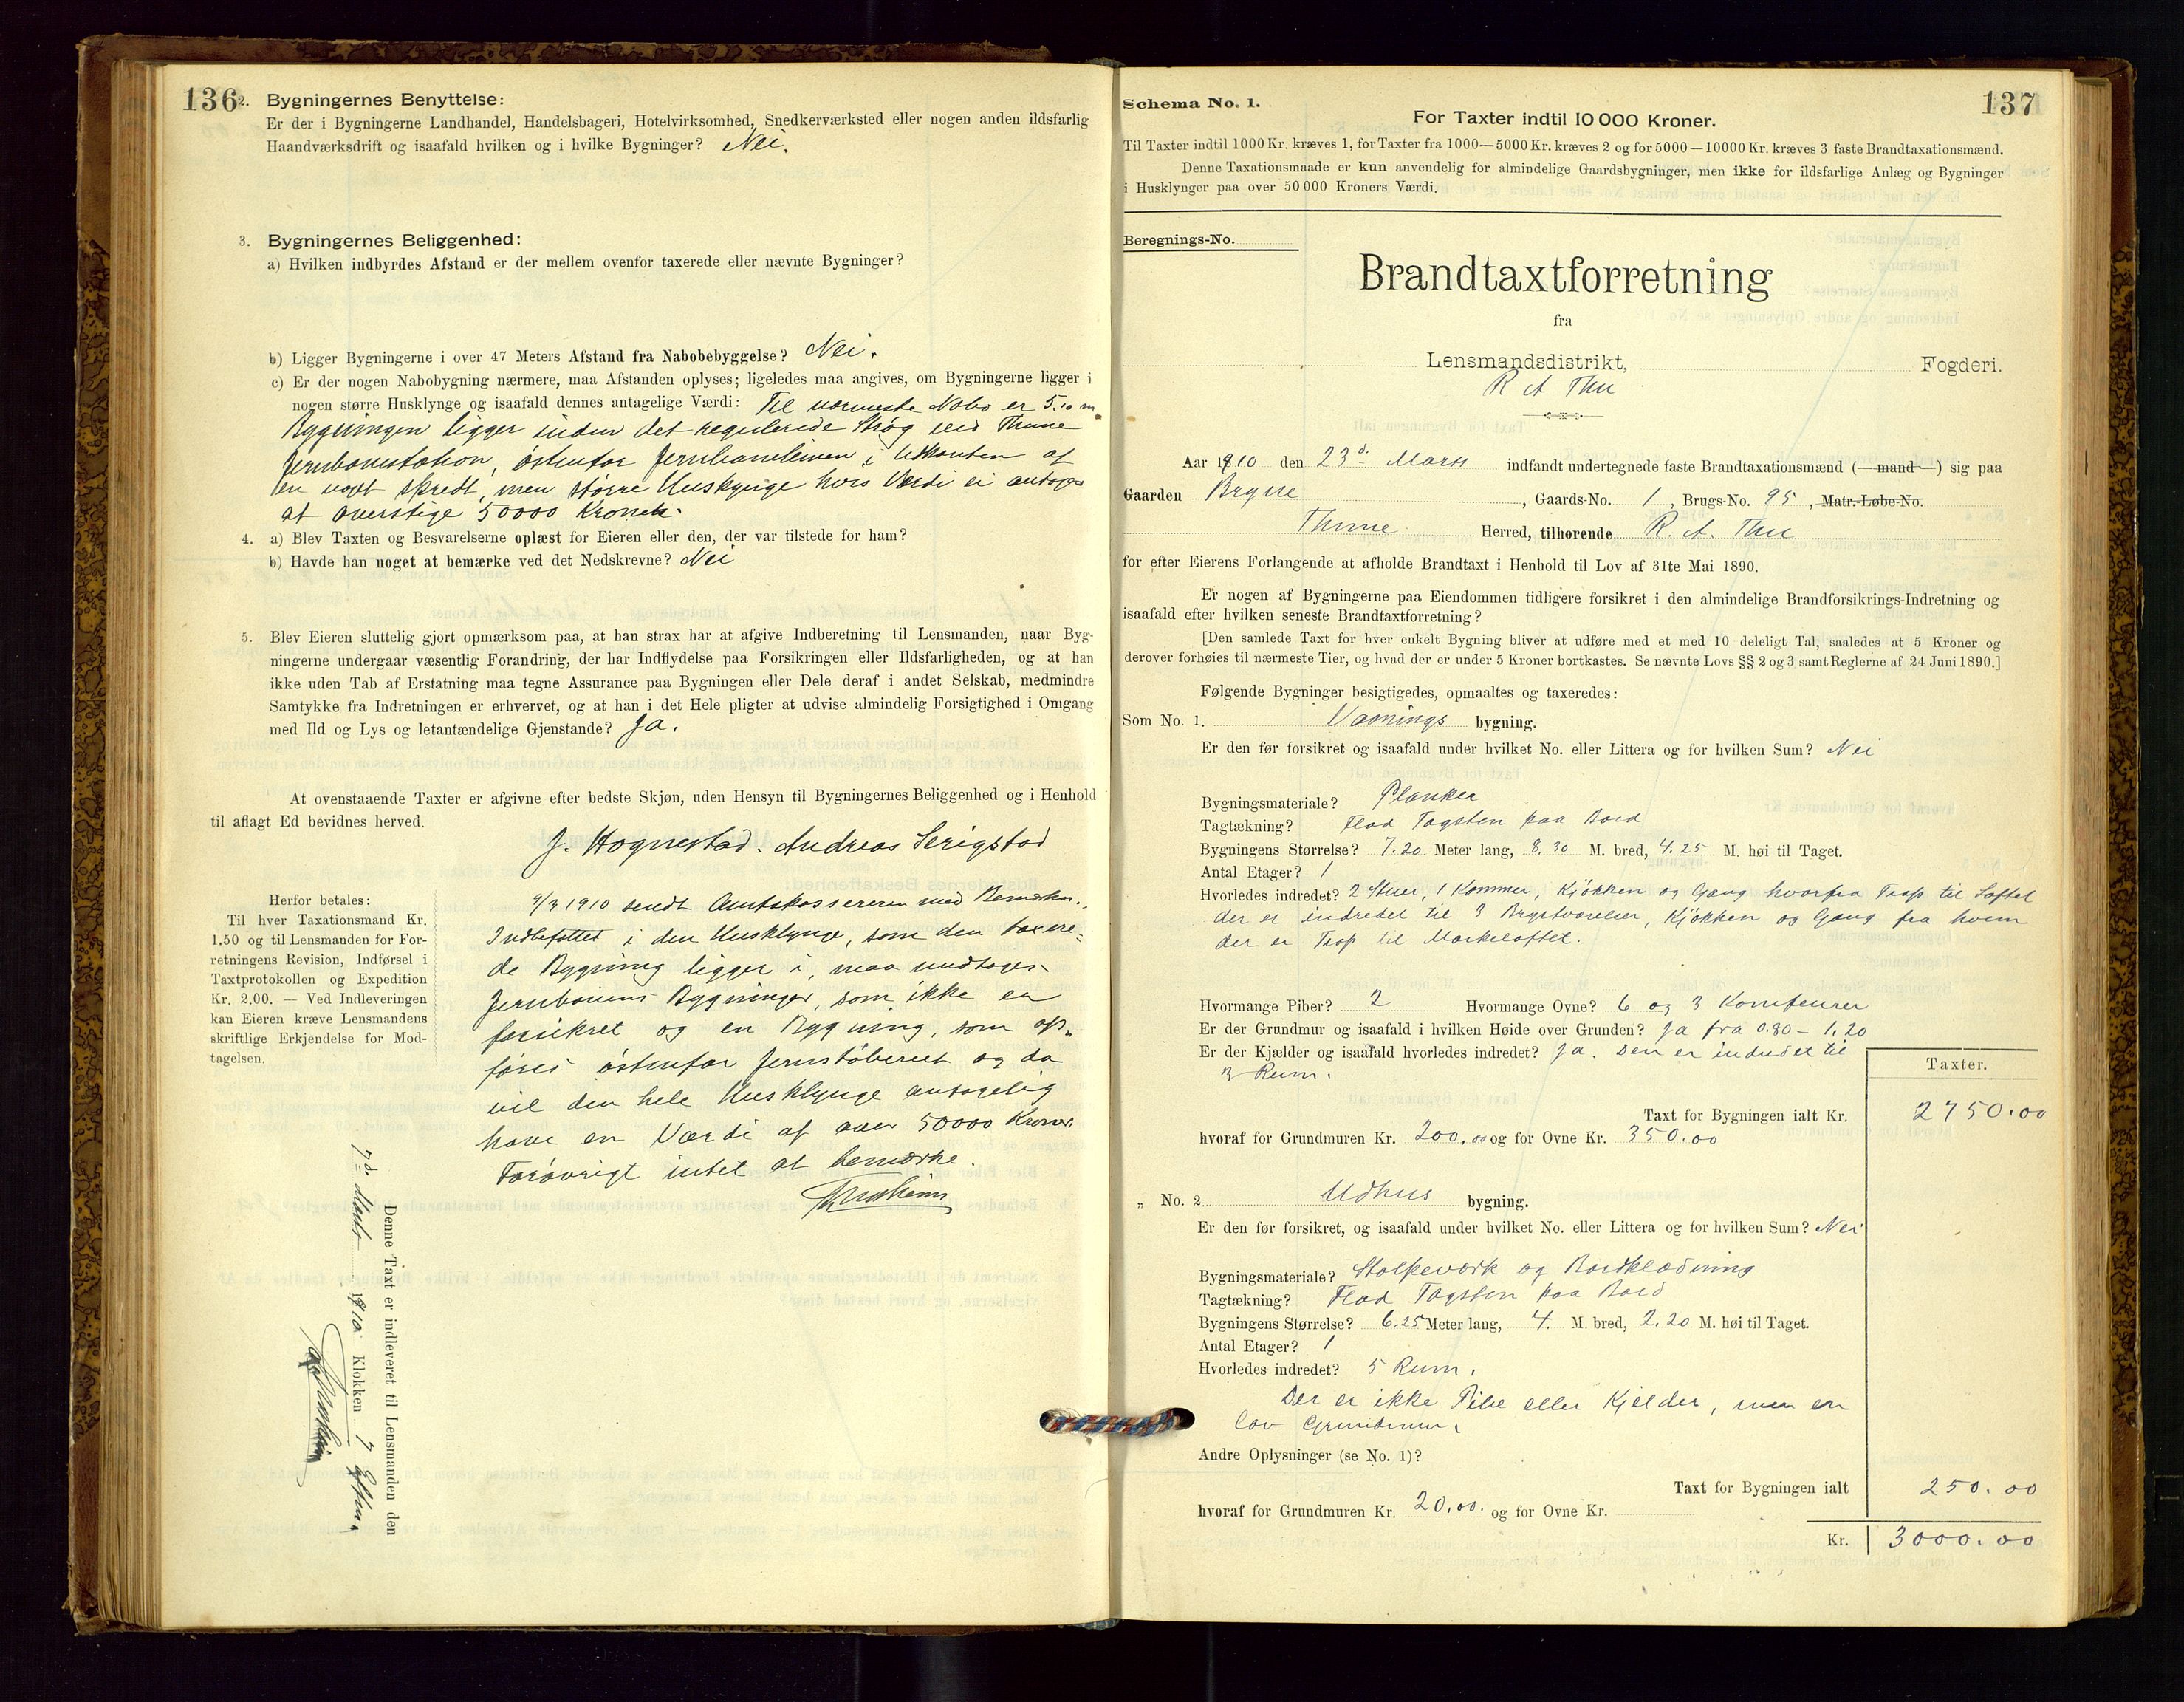 136
2. Bygningernes Benyttelse:
Er der i Bygningerne Landhandel, Handelsbageri, Hotelvirksomhed, Snedkerværksted eller nogen anden ildsfarlig
Haandværksdrift og isaafald hvilken og i hvilke Bygninger? Nei.
3. Bygningernes Beliggenhed:
a) Hvilken indbyrdes Afstand er der mellem ovenfor taxerede eller nævnte Bygninger?
b) Ligger Bygningerne i over 47 Meters Afstand fra Nabobebyggelse? Nei.
c) Er der nogen Nabobygning nærmere, maa Afstanden oplyses; ligeledes maa angives, om Bygningerne ligger i
nogen større Husklynge og isaafald dennes antagelige Værdi: Til nærmeste Nabo er 5.10 m.
Bygningen ligger inden det regulerede Strøg ved Thime
Jernbanestation, østenfor Jernbanelinien i Udkanten af
en noget spredt, men større Husklynge hvis Værdi ei antages
at overstige 50000 Kroner.
4. a) Blev Taxten og Besvarelserne oplæst for Eieren eller den, der var tilstede for ham?
b) Havde han noget at bemærke ved det Nedskrevne? Nei
5. Blev Eieren sluttelig gjort opmærksom paa, at han strax har at afgive Indberetning til Lensmanden, naar Byg-
ningerne undergaar væsentlig Forandring, der har Indflydelse paa Forsikringen eller Ildsfarligheden, og at han
ikke uden Tab af Erstatning maa tegne Assurance paa Bygningen eller Dele deraf i andet Selskab, medmindre
Samtykke fra Indretningen er erhvervet, og at han i det Hele pligter at udvise almindelig Forsigtighed i Omgang
med Ild og Lys og letantændelige Gjenstande? Ja.
At ovenstaaende Taxter er afgivne efter bedste Skjøn, uden Hensyn til Bygningernes Beliggenhed og i Henhold
til aflagt Ed bevidnes herved.
J. Hognestad. Andreas Serigstad
Herfor betales:
Til hver Taxationsmand Kr.
1.50 og til Lensmanden for For-
retningens Revision, Indførsel i
Taxtprotokollen og Expedition
Kr. 2.00. — Ved Indleveringen
kan Eieren kræve Lensmandens
skriftlige Erkjendelse for Mod-
tagelsen.
1910 sendt Amtskassereren med Bemærkn.:
Indbefattet i den Husklynge, som den taxere-
de Bygning ligger i, maa undtages
Jernbanens Bygninger, som ikke er
forsikret og en Bygning, som op-
føres østenfor Jernstøberiet og da
vil den hele Husklynge antagelig
have en Værdi af over 50000 Kroner.
Forøvrigt intet at bemærke.
Denne Taxt er indleveret til Lensmanden den
7d Marts 1910 Klokken 7 Efm.
137
Schema No. 1.
For Taxter indtil 10 000 Kroner.
Til Taxter indtil 1000 Kr. kræves 1, for Taxter fra 1000—5000 Kr. kræves 2 og for 5000—10000 Kr. kræves 3 faste Brandtaxationsmænd.
Denne Taxationsmaade er kun anvendelig for almindelige Gaardsbygninger, men ikke for ildsfarlige Anlæg og Bygninger
i Husklynger paa over 50 000 Kroners Værdi.
Beregnings-No.
Brandtaxtforretning
fra
Lensmandsdistrikt, Fogderi.
R A Thu
Aar 1910 den 23d Marts indfandt undertegnede faste Brandtaxationsmænd (—mand—) sig paa
Gaarden Bryne, Gaards-No. 1, Brugs-No. 95, Matr.-Løbe-No.
Thime Herred, tilhørende R. A. Thu
for efter Eierens Forlangende at afholde Brandtaxt i Henhold til Lov af 31te Mai 1890.
Er nogen af Bygningerne paa Eiendommen tidligere forsikret i den almindelige Brandforsikrings-Indretning og
isaafald efter hvilken seneste Brandtaxtforretning?
[Den samlede Taxt for hver enkelt Bygning bliver at udføre med et med 10 deleligt Tal, saaledes at 5 Kroner og
derover forhøies til nærmeste Tier, og hvad der er under 5 Kroner bortkastes. Se nævnte Lovs §§ 2 og 3 samt Reglerne af 24 Juni 1890.]
Følgende Bygninger besigtigedes, opmaaltes og taxeredes:
Som No. 1. Vaanings bygning.
Er den før forsikret og isaafald under hvilket No. eller Littera og for hvilken Sum? Nei
Bygningsmateriale? Planker
Tagtækning? Flad Tagsten paa Bord
Bygningens Størrelse? 7.20 Meter lang, 8.30 M. bred, 4.25 M. høi til Taget.
Antal Etager? 1
Hvorledes indredet? 2 Stuer, 1 Kammer, Kjøkken og Gang hvorfra Trap til Loftet
der er indredet til 3 Brystværelser, Kjøkken og Gang fra hvem
der er Trap til Mørkeloftet.
Hvormange Piber? 2 Hvormange Ovne? 6 og 3 Komfeurer
Er der Grundmur og isaafald i hvilken Høide over Grunden? Ja fra 0.80 – 1.20
Er der Kjælder og isaafald hvorledes indredet? Ja. Den er indredet til
3 Rum.
Taxter.
Taxt for Bygningen ialt Kr. 2750.00
hvoraf for Grundmuren Kr. 200.00 og for Ovne Kr. 350.00
„ No. 2 Udhus bygning.
Er den før forsikret, og isaafald under hvilket No. eller Littera og for hvilken Sum? Nei
Bygningsmateriale? Stolpeværk og Bordklædning
Tagtækning? Flad Tagsten paa Bord
Bygningens Størrelse? 6.25 Meter lang, 4. M. bred, 2.20 M. høi til Taget.
Antal Etager? 1
Hvorledes indredet? 5 Rum.
Der er ikke Pibe eller Kjelder, men en
lav Grundmur.
Andre Oplysninger (se No. 1)?
Taxt for Bygningen ialt 250.00
hvoraf for Grundmuren Kr. 20.00. og for Ovne Kr.
Kr. 3000.00